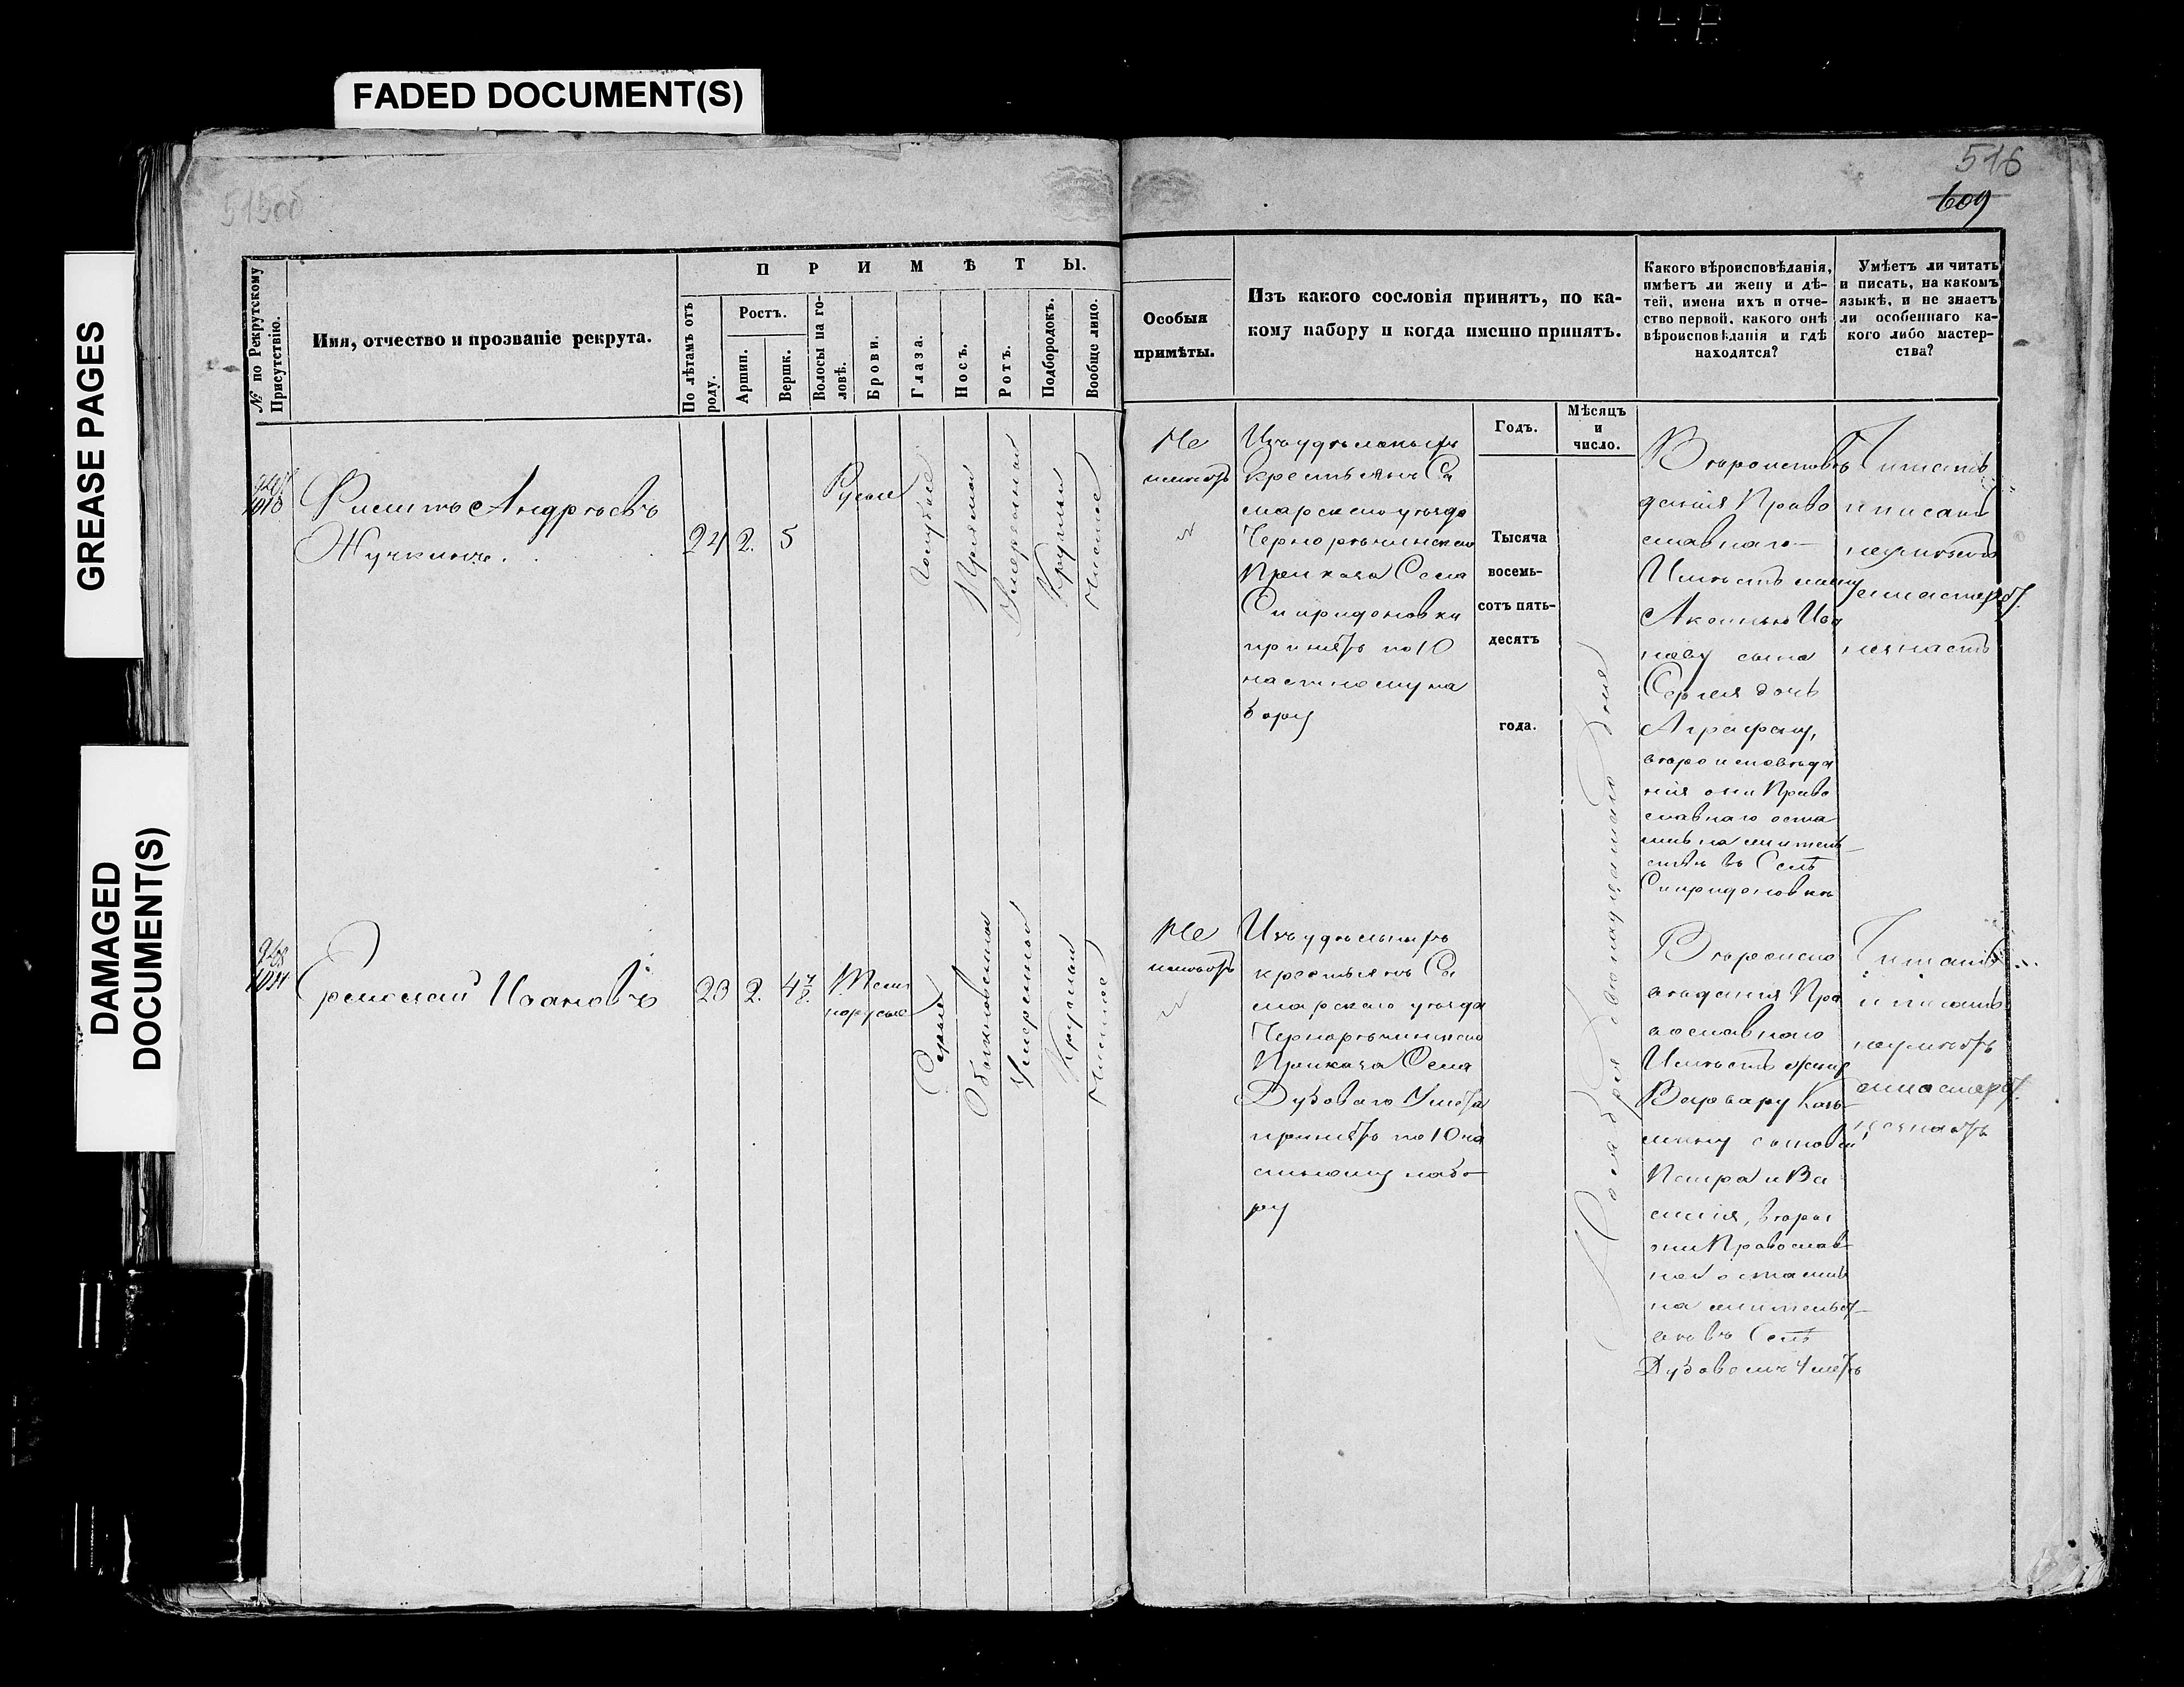 FADED DOCUMENT(S)
GREASE PAGES
DAMAGED
DOCUMENT(S)
516
609
№ по Рекрутскому
Присутствію.
Имя, отчество и прозваніе рекрута.
ПРИМѢТЫ.
По лѣтамъ отъ
роду.
Ростъ.
Аршин.
Вершк.
Волосы на го-
ловѣ.
Брови.
Глаза.
Носъ.
Ротъ.
Подбородокъ.
Вообще лицо.
Особыя
примѣты.
Изъ какого сословія принятъ, по ка-
кому набору и когда именно принятъ.
Годъ.
Мѣсяцъ
и
число.
Какого вѣроисповѣданія,
имѣетъ ли жену и дѣ-
тей, имена ихъ и отче-
ство первой, какого онѣ
вѣроисповѣданія и гдѣ
находятся?
Умѣетъ ли читать
и писать, на какомъ
языкѣ, и не знаетъ
ли особеннаго ка-
кого либо мастер-
ства?
Филипъ Андреевъ
Жучкинъ.
24
2.
5
Русые
Голубые
Прямой
Умеренной
Круглый
Чистое
Не
имеетъ
Изъ удельныхъ
крестьянъ Са
марскаго уезда
Черноречинскаго
Приказа Села
Спиридоновки
принятъ по 10
частному на
бору
Тысяча
восемь-
сотъ пять-
десятъ
года.
Ноября двенадцатаго дня
Вероисповѣ
данія Право
славнаго
Имѣетъ жену
Аксинью Ива
нову сына
Сергея дочь
Аграфену,
вероисповеда
нія они Право
славнаго оста
лись на житель
стве въ Селѣ
Спиридоновке
Читать
и писать
неумеетъ
и мастерст.
незнаетъ
Еремей Ивановъ
23
2.
4 7/8
Темно
русые
Серые
Обыкновенной
Умеренной
Круглой
Чистое
Не
имеетъ
Изъ удельныхъ
крестьянъ Са
марскаго уезда
Черноречинскаго
Приказа Села
Дубоваго Умета
принятъ по 10 ча
стному набо
ру
Вероиспо
веданія Пра
вославнаго
Имѣетъ жену
Варвару Кось
мину сыновей
Петра и Ва
силія, веры
они Православ
ной остались
на жительст
ве въ Селѣ
Дубовомъ Умете
Читать
и писать
неумеетъ
и мастерст.
незнаетъ